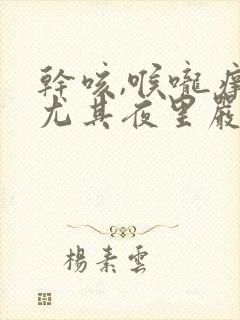 幹咳,喉嚨癢
尤其夜里嚴
楊素雲